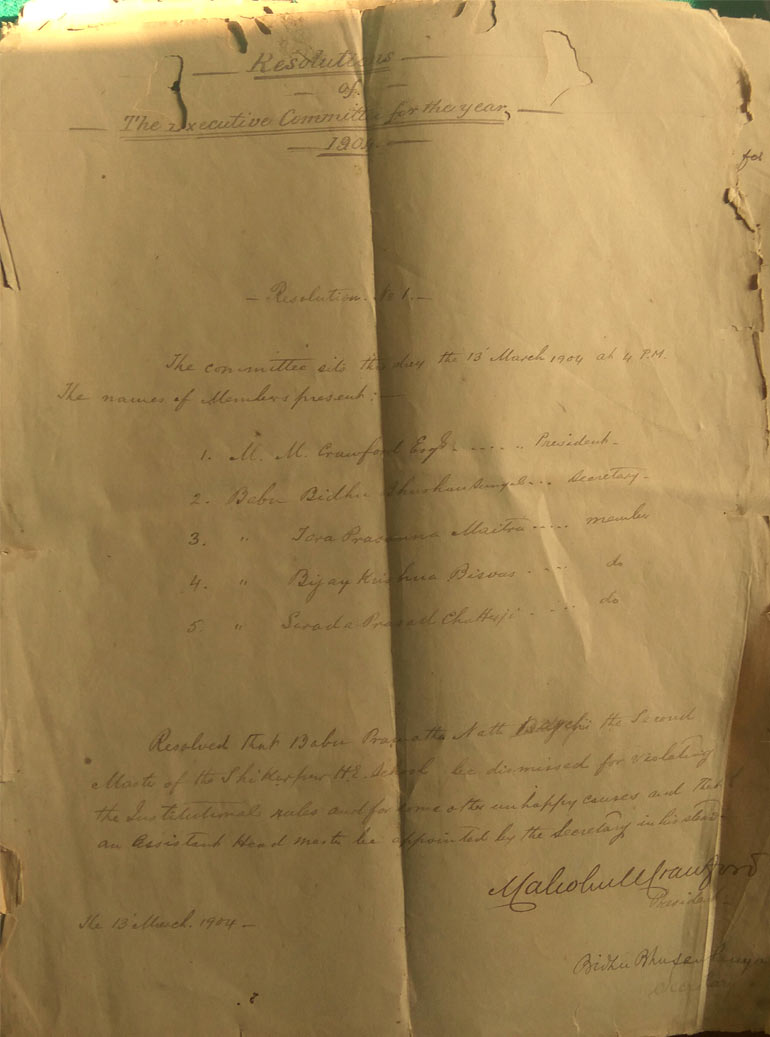 Resolutions
of
The Executive Committee for the year,
1904.
- Resolution. No 1. -
The committee sits this day the 13 March 1904 at 4 P.M.
The names of Members present : -
1. M. M. Crawford Esqr. ..... President.
2. Babu Bidhu Bhushan ... Secretary.
3. " Tara Prasanna Maitra ..... member
4. " Bijay Krishna Biswas .... do
5. " Sarada Prasad Chatterji .... do
Resolved that Babu Pramatha Nath Bagchi the Second
Master of the Shikarpur H.E. School be dismissed for violating
the Institutional rules and for some other unhappy causes and that
an Assistant Head master be appointed by the Secretary in his stead.
Malcolm Crawford
President.
The 13 March. 1904 -
Bidhu Bhusan
Secretary
for